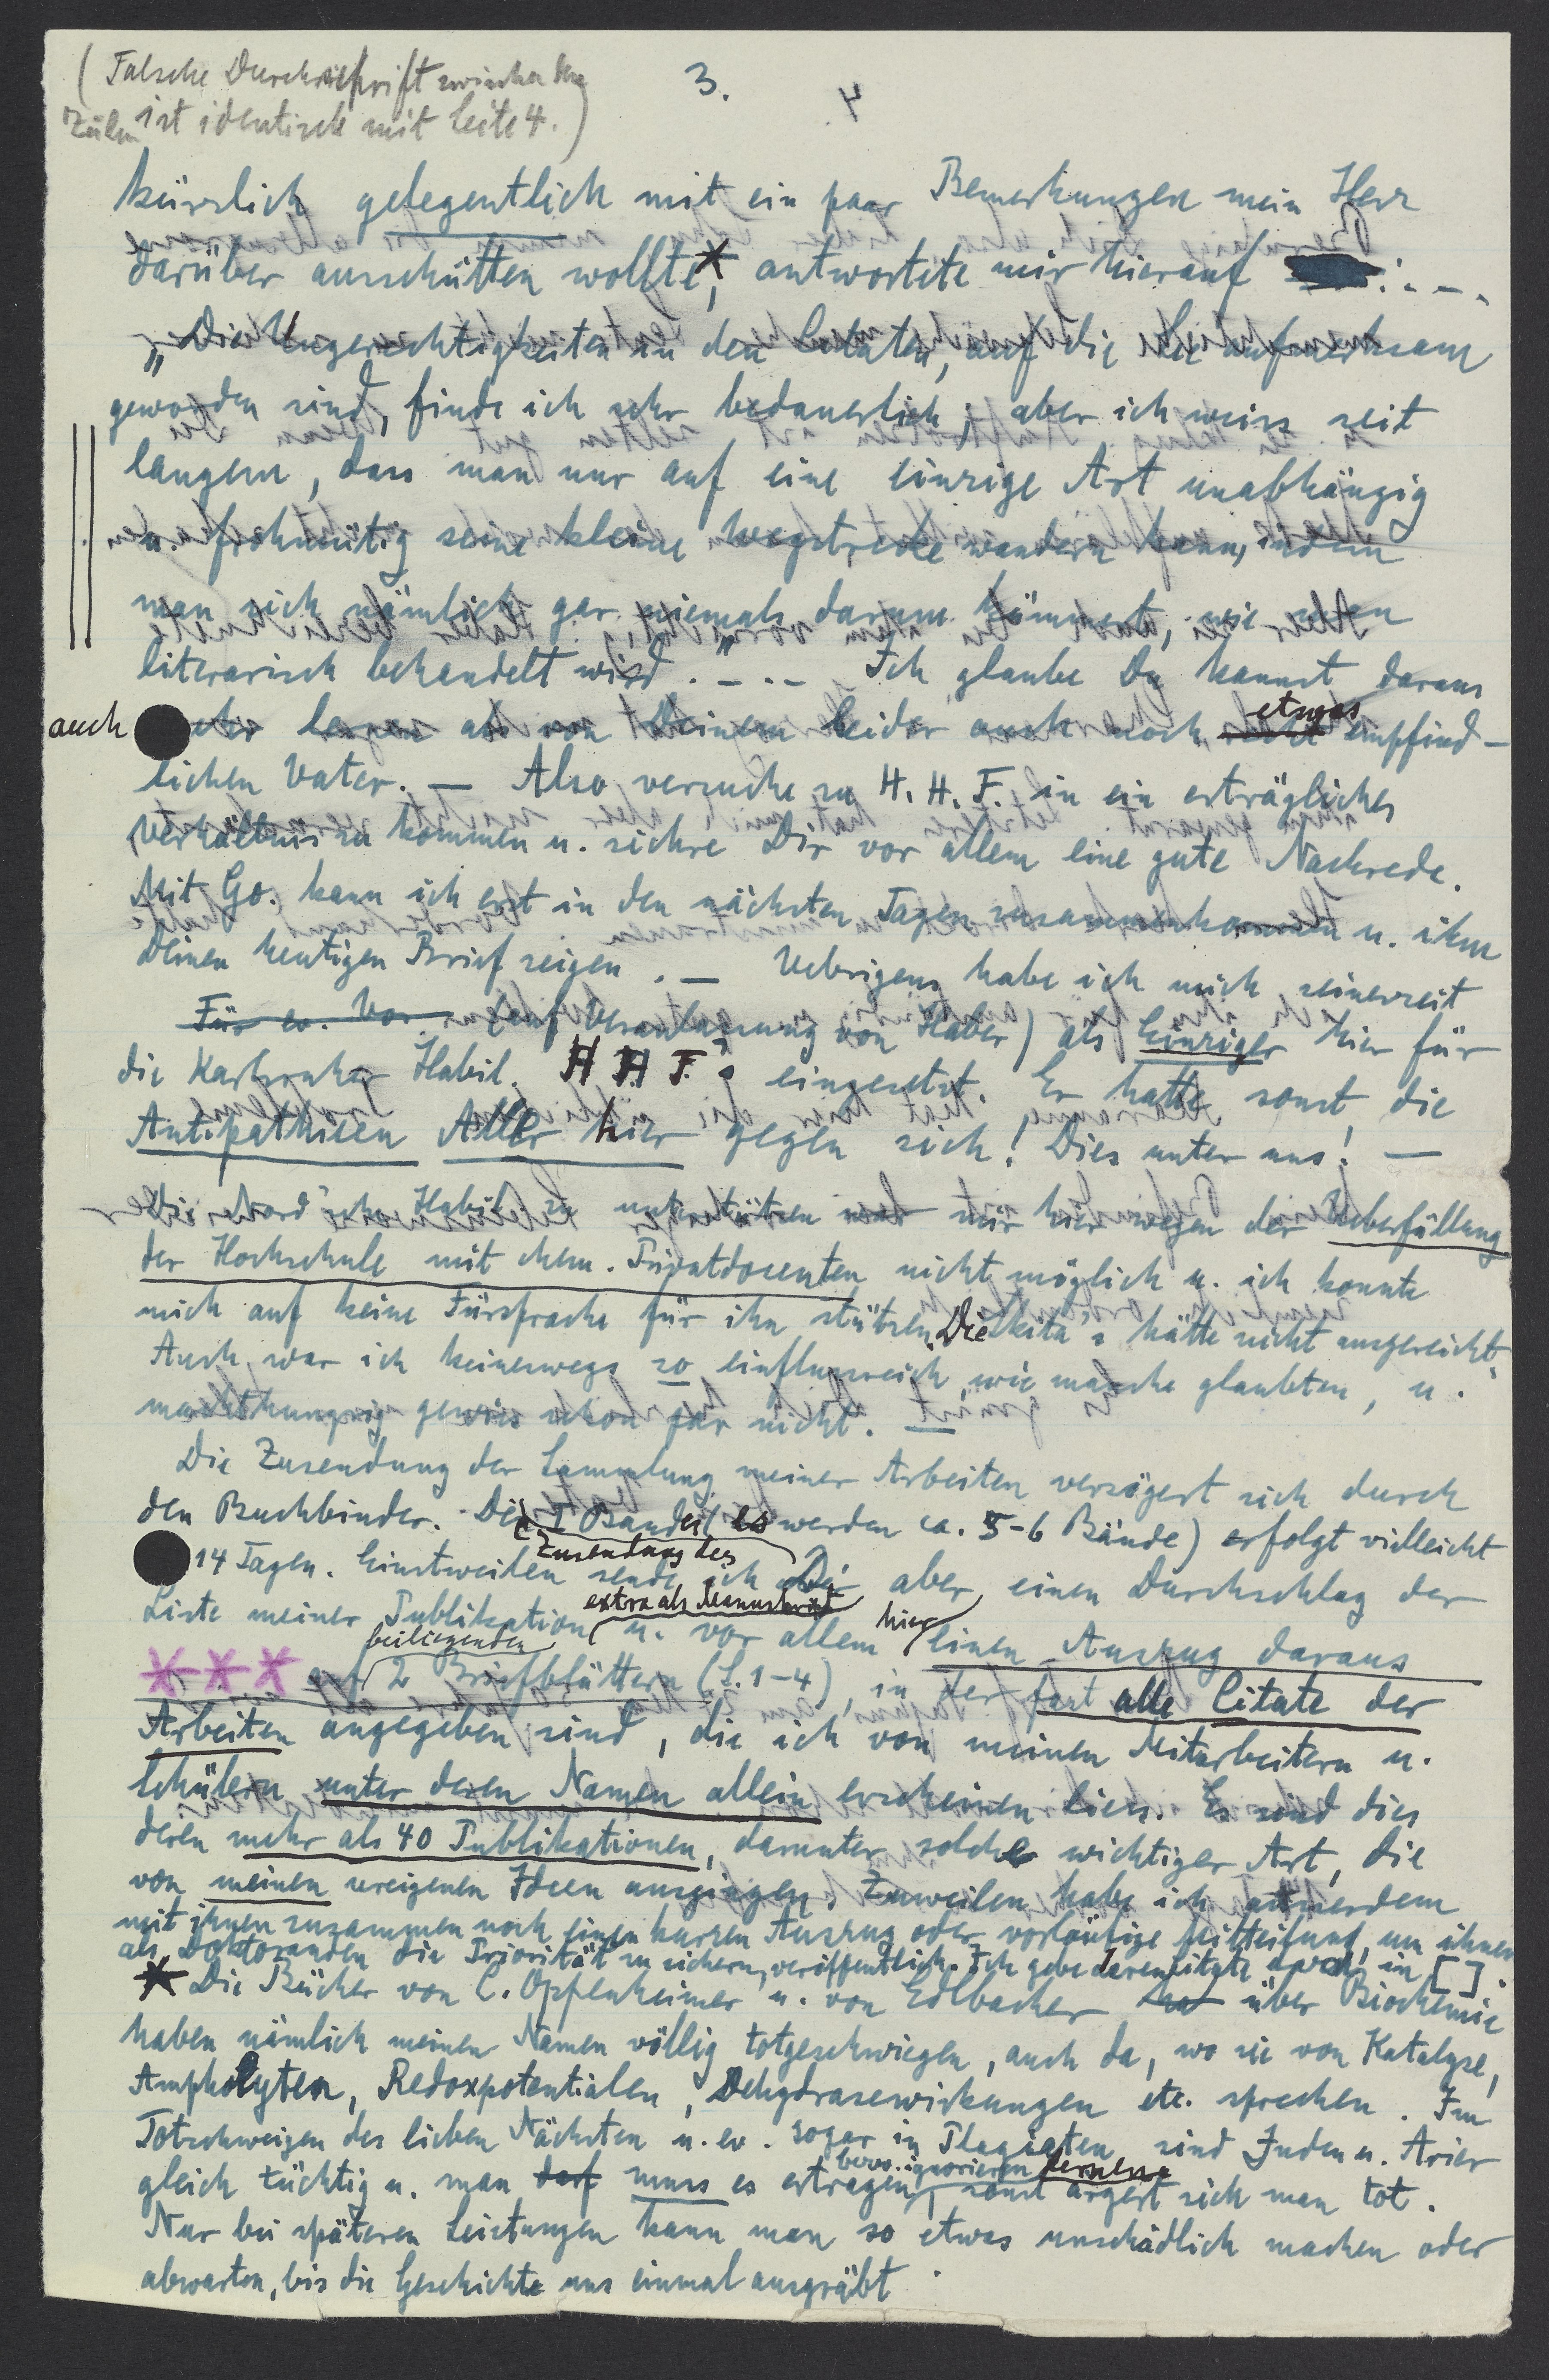 (Falsche Durchschrift zwischen den
Zeilen ist identisch mit Seite 4.)
3.
4
kürzlich gelegentlich mit ein paar Bemerkungen mein Herz
darüber ausschütten wollte*, antwortete mir hierauf :.–.
„Die Ungerechtigkeiten in den Citaten, auf die Sie aufmerksam
geworden sind, finde ich sehr bedauerlich; aber ich weiss seit
langem, dass man nur auf eine einzige Art unabhängig
u. frohmütig seine kleine Wegstrecke wandern kann, indem
man sich nämlich gar niemals darum kümmert, wie man
literarisch behandelt wird." .–.– Ich glaube Du kannst daraus
auch eher lernen als von Deinem leider auch noch etwas empfind-
lichen Vater. – Also versuche zu H. H. F. in ein erträgliches
Verhältnis zu kommen u. sichre Dir vor allem eine gute Nachrede.
Mit Go. kann ich erst in den nächsten Tagen zusammenkommen u. ihm
Deinen heutigen Brief zeigen. – Uebrigens habe ich mich seinerzeit
Für ev. Vor (auf Veranlassung von Haber) als Einziger hier für
die Karlsruher Habil. H H F.'s eingesetzt. Er hatte sonst die
Antipathieen Aller hier gegen sich! Dies unter uns! –
Die Nord'sche Habil. zu unterstützen war mir hier wegen der Ueberfüllung
der Hochschule mit chem. Privatdocenten nicht möglich u. ich konnte
mich auf keine Fürsprache für ihn stützen. Die Skita's hätte nicht ausgereicht.
Auch war ich keineswegs so einflussreich, wie manche glaubten, u.
machthungrig gewiss schon gar nicht. –
Die Zusendung der Sammlung meiner Arbeiten verzögert sich durch
den Buchbinder. Die Zusendung des I Bandes (es werden ca. 5-6 Bände) erfolgt vielleicht
14 Tagen. Einstweilen sende ich Dir aber einen Durchschlag der
Liste meiner Publikation extra als Manuskript u. vor allem hier einen Auszug daraus
*** auf beiliegenden 2 Briefblättern (S. 1-4), in der fast alle Citate der
Arbeiten angegeben sind, die ich von meinen Mitarbeitern u.
Schülern unter deren Namen allein erscheinen liess. Es sind dies
deren mehr als 40 Publikationen, darunter solche wichtiger Art, die
von meinen ureigenen Ideen ausgingen. Zuweilen habe ich ausserdem
mit ihnen zusammen noch einen kurzen Auszug oder vorläufige Mitteilung, um ihnen
als Doktoranden die Priorität zu sichern, veröffentlich. Ich gebe deren Citate auch in [ ].
* Die Bücher von C. Oppenheimer u. von Edlbacher über Biochemie
haben nämlich meinen Namen völlig totgeschwiegen, auch da, wo sie von Katalyse,
Ampholyten, Redoxpotentialen, Dehydrasewirkungen etc. sprechen. Im
Totschweigen des lieben Nächsten u. ev. sogar in Plagiaten sind Juden u. Arier
gleich tüchtig u. man darf muss es ertragen bezw. ignorieren lernen, sonst ärgert sich man tot.
Nur bei späteren Leistungen kann man so etwas unschädlich machen oder
abwarten, bis die Geschichte uns einmal ausgräbt.